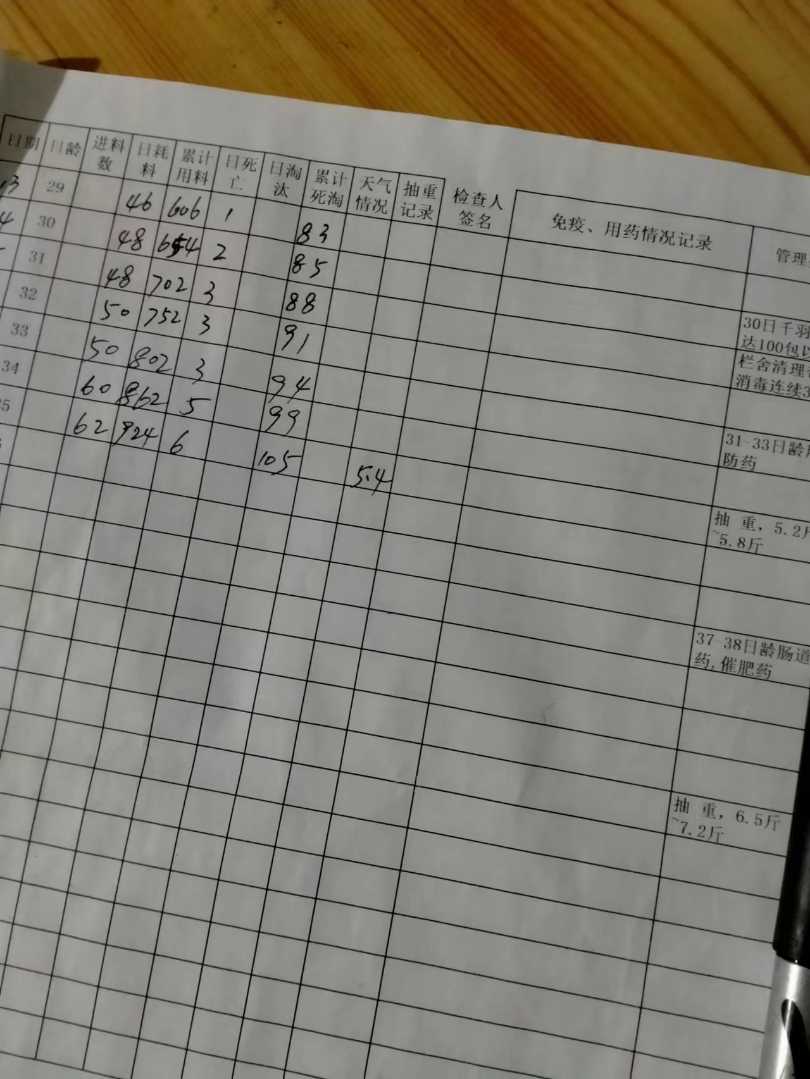 日期 日龄 进料数 日耗料 累计用料 日死亡 日淘汰 累计死淘 天气情况 抽重记录 检查人签名 免疫、用药情况记录 管理
29 46 606 1 83
30 48 654 2 85
31 48 702 3 88
32 50 752 3 91
33 50 802 3 94
34 60 862 5 99
62 924 6 105 5.4
30日千羽
达100包
栏舍清理
消毒连续
31-33日龄
防药
抽 重，5.2斤
~5.8斤
37-38日龄肠道
药,催肥药
抽 重，6.5斤
~7.2斤